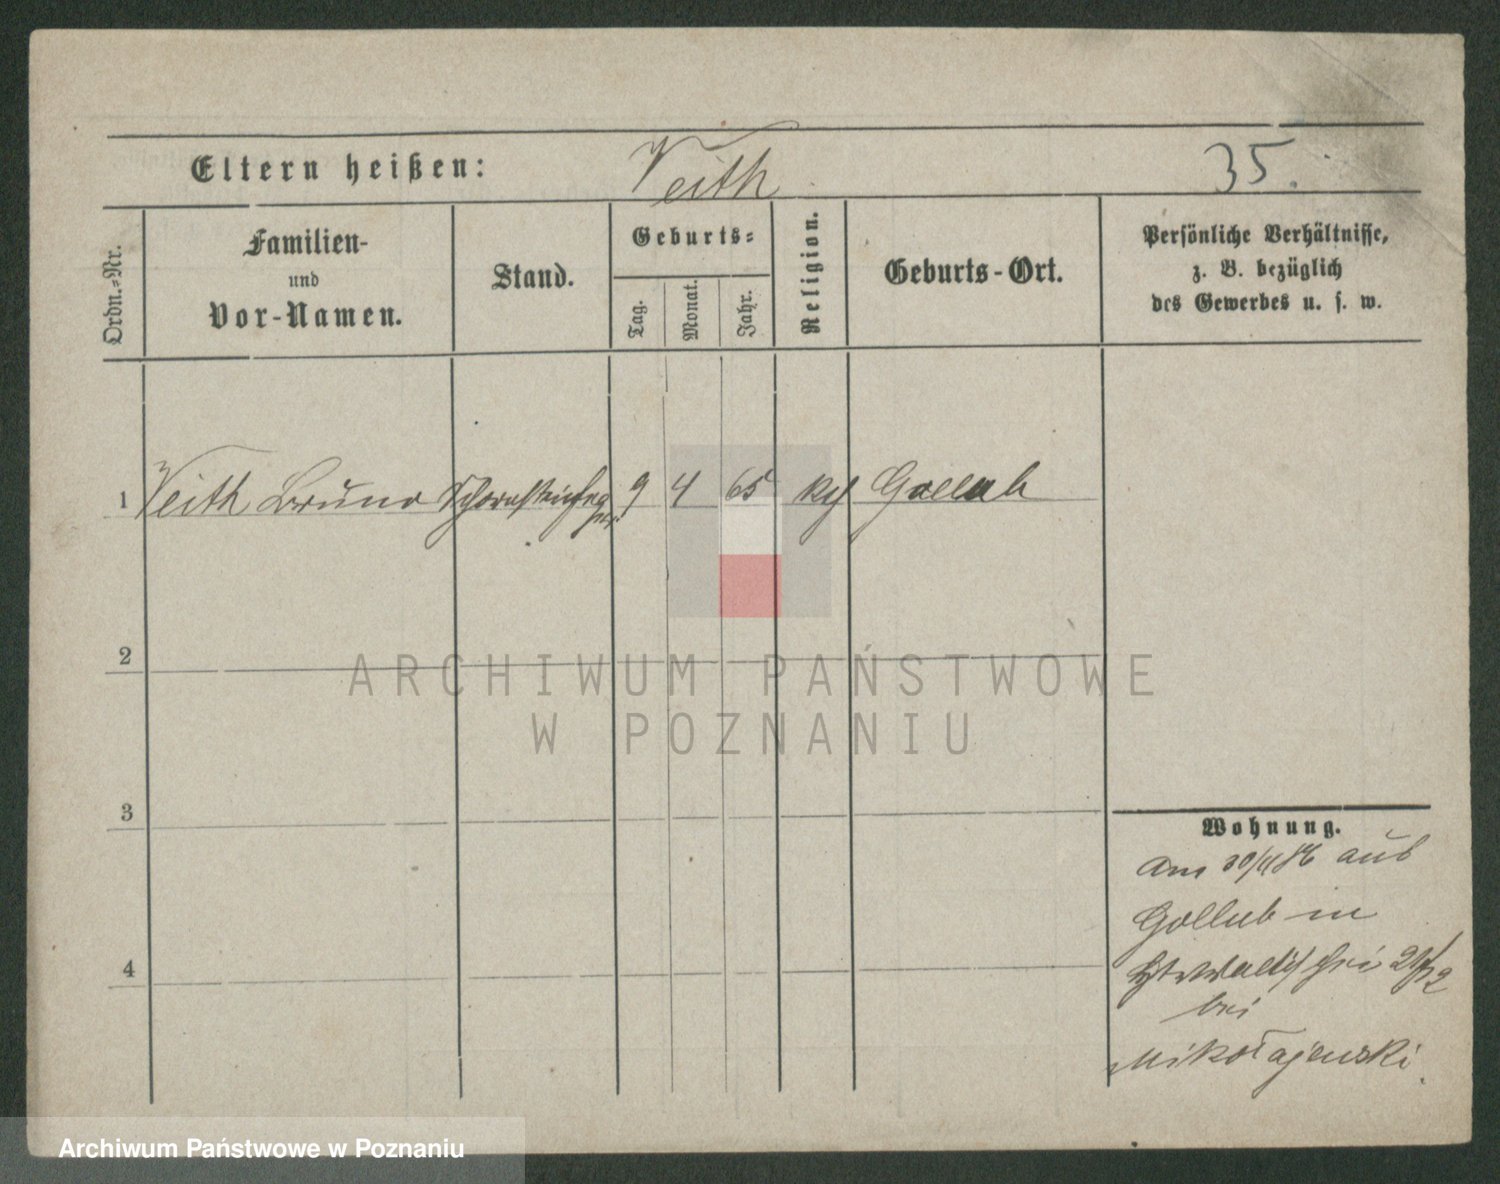 Eltern heißen: Veith 35.
Ordn.-Nr.
Familien-
und
Vor-Namen.
Stand.
Geburts-
Tag.
Monat.
Jahr.
Religion.
Geburts-Ort.
Persönliche Verhältnisse,
z. B. bezüglich
des Gewerbes u. s. w.
1 Veith Bruno Schornsteinfeger 9 4 65 Gollub
2
3
4
Wohnung.
Am 30/4 86 aus
Gollub in
bei
Mikołajewski.
ARCHIWUM PAŃSTWOWE
W POZNANIU
Archiwum Państwowe w Poznaniu